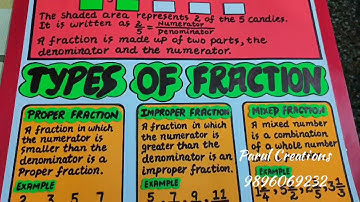 The shaded area represents 2 of the 5 candies.
It is written as 2/5 = Numerator/Denominator
A fraction is made up of two parts, the
denominator and the numerator.
TYPES OF FRACTION
PROPER FRACTION
A fraction in which
the numerator is
smaller than the
denominator is a
Proper fraction.
EXAMPLE
IMPROPER FRACTION
A fraction in which
the numerator is
greater than the
denominator is an
improper fraction.
EXAMPLE
MIXED FRACTION
A mixed number
is a combination
of a whole number
EXAMPLE
Parul Creations
9896069232